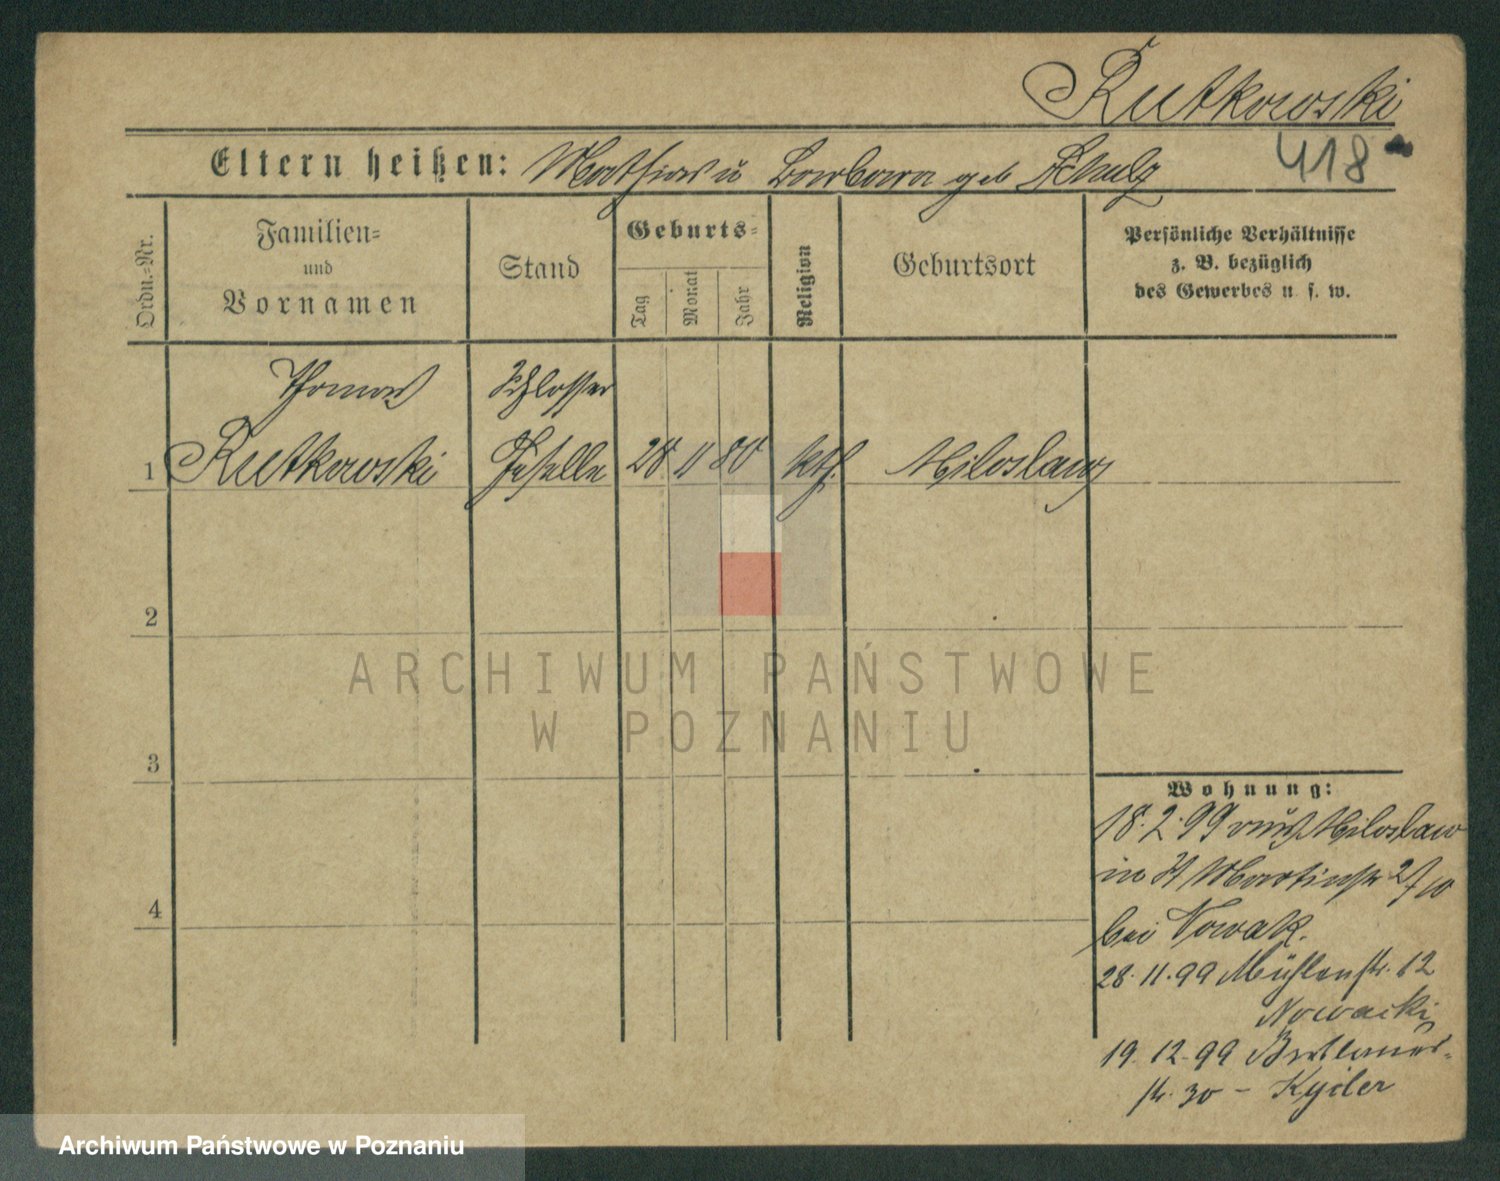 Rutkowski
Eltern heißen: Mathias u Barbara geb Schulz
418
Ordn.-Nr.
Familien-
und
Vornamen
Stand
Geburts-
Tag
Monat
Jahr
Religion
Geburtsort
Persönliche Verhältnisse
z. B. bezüglich
des Gewerbes u. s. w.
Thomas Schlosser
1 Rutkowski Geselle 28 11 80 kth. Miloslaw
2
3
4
ARCHIWUM PAŃSTWOWE
W POZNANIU
Wohnung:
18.2.99 aus Miloslaw
in St Martinstr
bei Nowak.
28.11.99 Mühlenstr. 12
Nowacki
19.12.99
str. 30 –
Archiwum Państwowe w Poznaniu